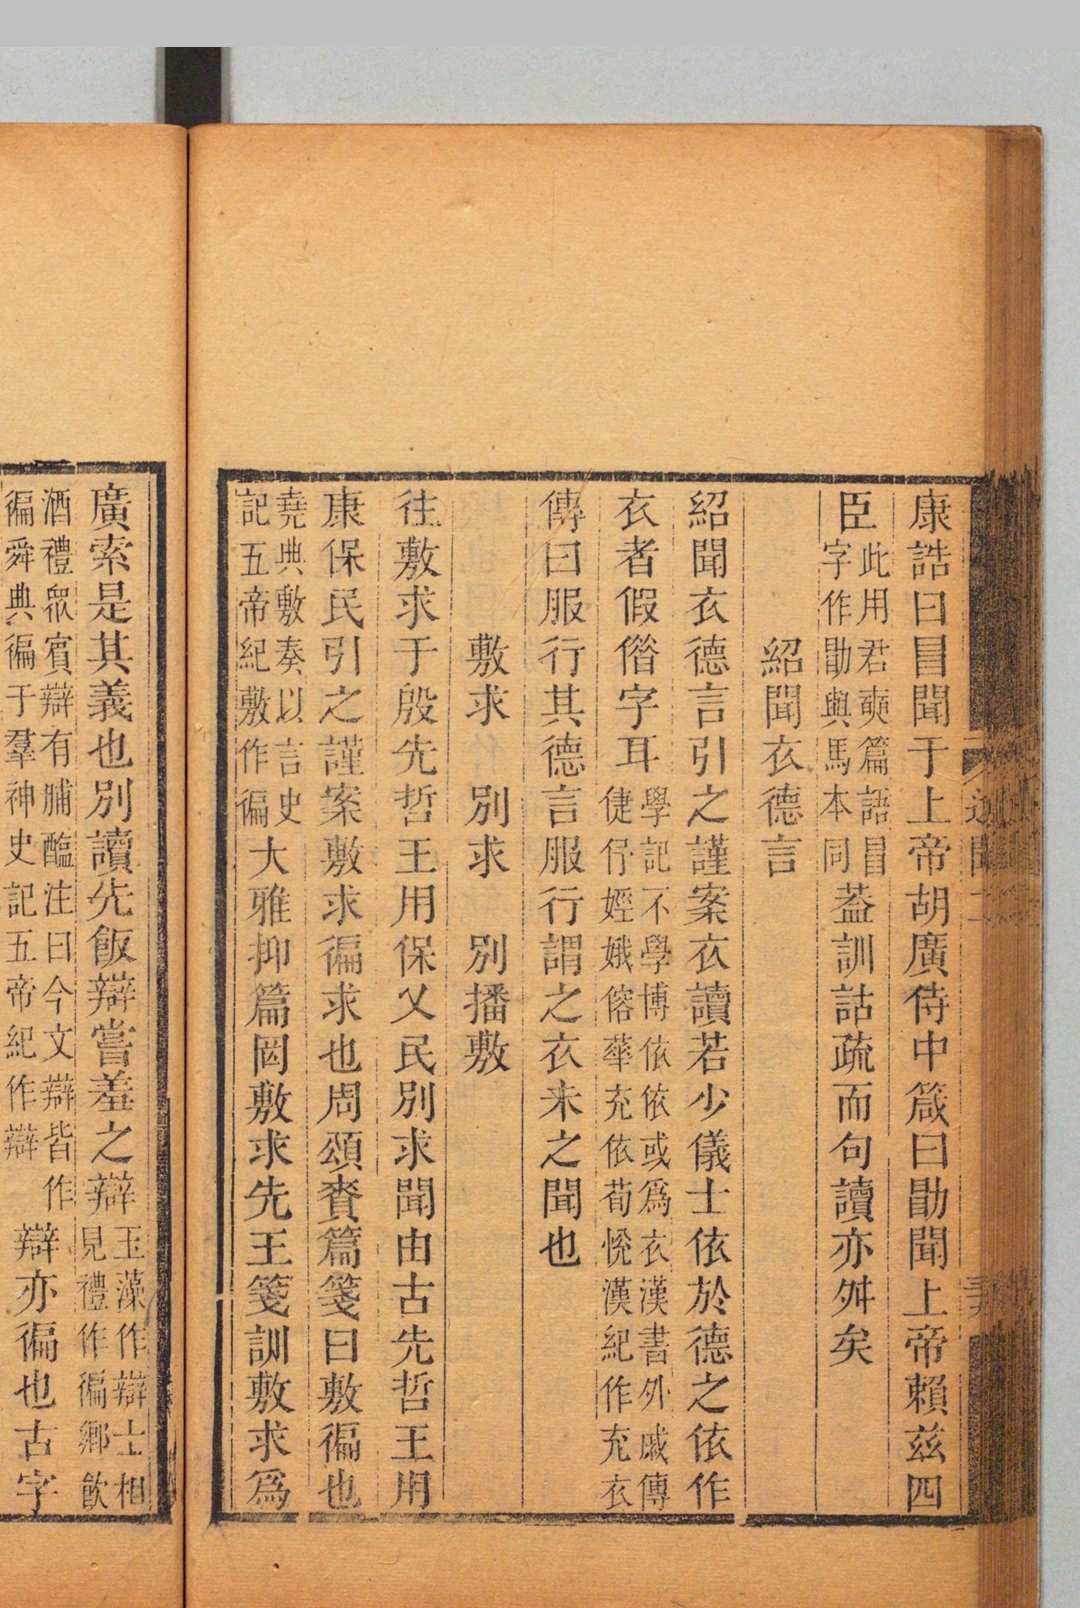 康誥曰冒聞于上帝胡廣侍中箴曰勖聞上帝賴兹四
臣此用君奭篇語冒字作勖與馬本同葢訓詁疏而句讀亦舛矣
紹聞衣德言
紹聞衣德言引之謹案衣讀若少儀士依於德之依作
衣者假偺字耳學記不學博依依或爲衣漢書外戚傳倢伃娙娥傛華充依荀悅漢紀作充衣
傳曰服行其德言服行謂之衣未之聞也
敷求　别求　别播敷
往敷求于殷先哲王用保乂民别求聞由古先哲王用
康保民引之謹案敷求徧求也周頌賚篇箋曰敷徧也
堯典敷奏以言史記五帝紀敷作徧大雅抑篇罔敷求先王箋訓敷求爲
廣索是其義也別讀先飯辯嘗羞之辯玉藻作辯士相見禮作徧鄉飲
酒禮眾賓辯有脯醢注曰今文辯皆作徧舜典徧于羣神史記五帝紀作辯辯亦徧也古字